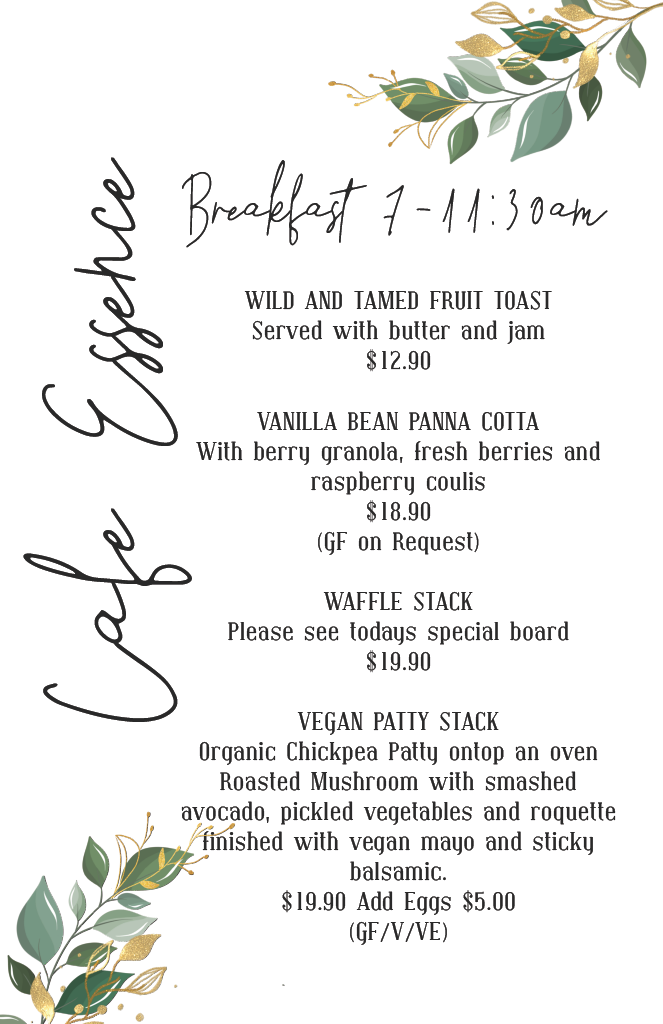 Cafe Essence
Breakfast 7-11:30am
WILD AND TAMED FRUIT TOAST
Served with butter and jam
$12.90
VANILLA BEAN PANNA COTTA
With berry granola, fresh berries and
raspberry coulis
$18.90
(GF on Request)
WAFFLE STACK
Please see todays special board
$19.90
VEGAN PATTY STACK
Organic Chickpea Patty ontop an oven
Roasted Mushroom with smashed
avocado, pickled vegetables and roquette
finished with vegan mayo and sticky
balsamic.
$19.90 Add Eggs $5.00
(GF/V/VE)